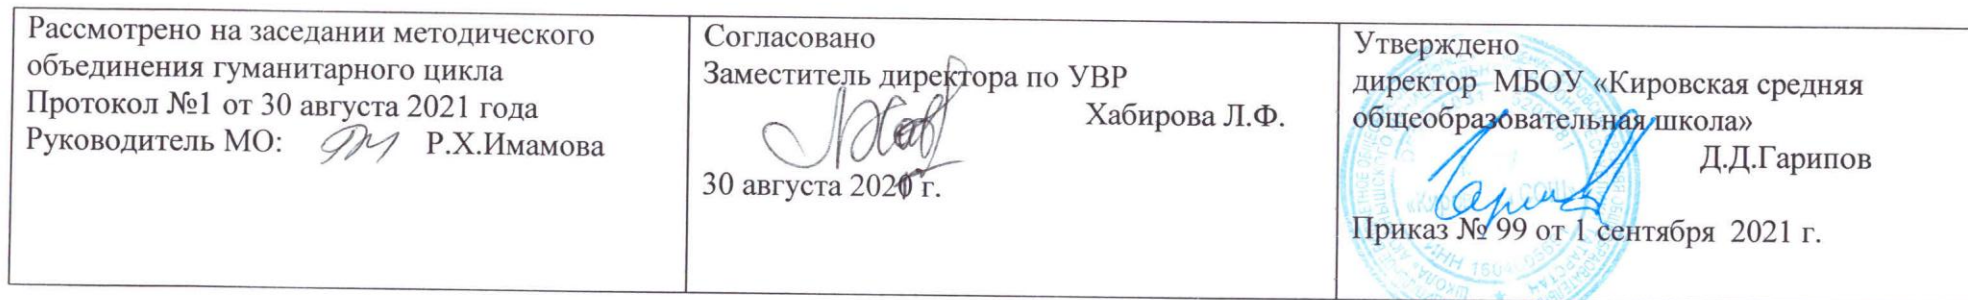 Рассмотрено на заседании методического
объединения гуманитарного цикла
Протокол №1 от 30 августа 2021 года
Руководитель МО: Р.Х.Имамова
Согласовано
Заместитель директора по УВР
Хабирова Л.Ф.
30 августа 2021 г.
Утверждено
директор МБОУ «Кировская средняя
общеобразовательная школа»
Д.Д.Гарипов
Приказ № 99 от 1 сентября 2021 г.